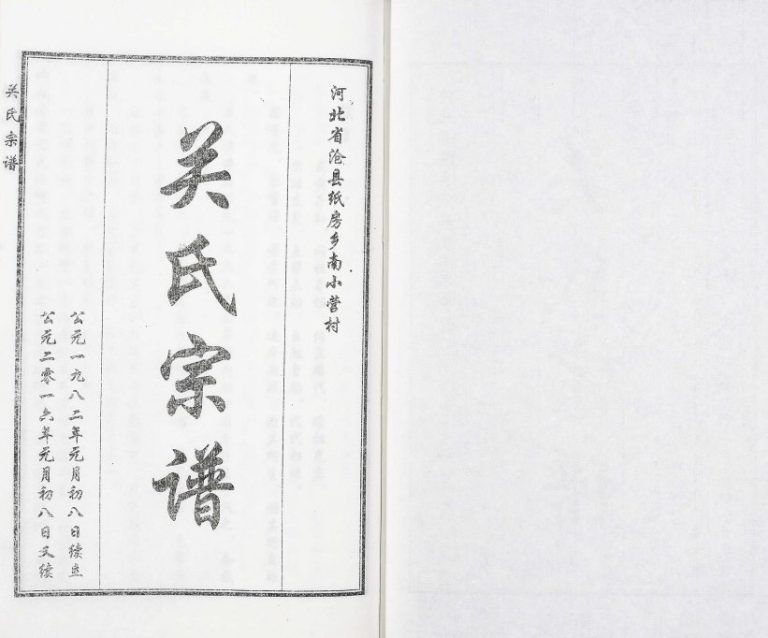 河北省沧县纸房乡南小营村
关氏宗谱
公元一九八二年元月初八日续立
公元二零一六年元月初八日又续
关氏宗谱